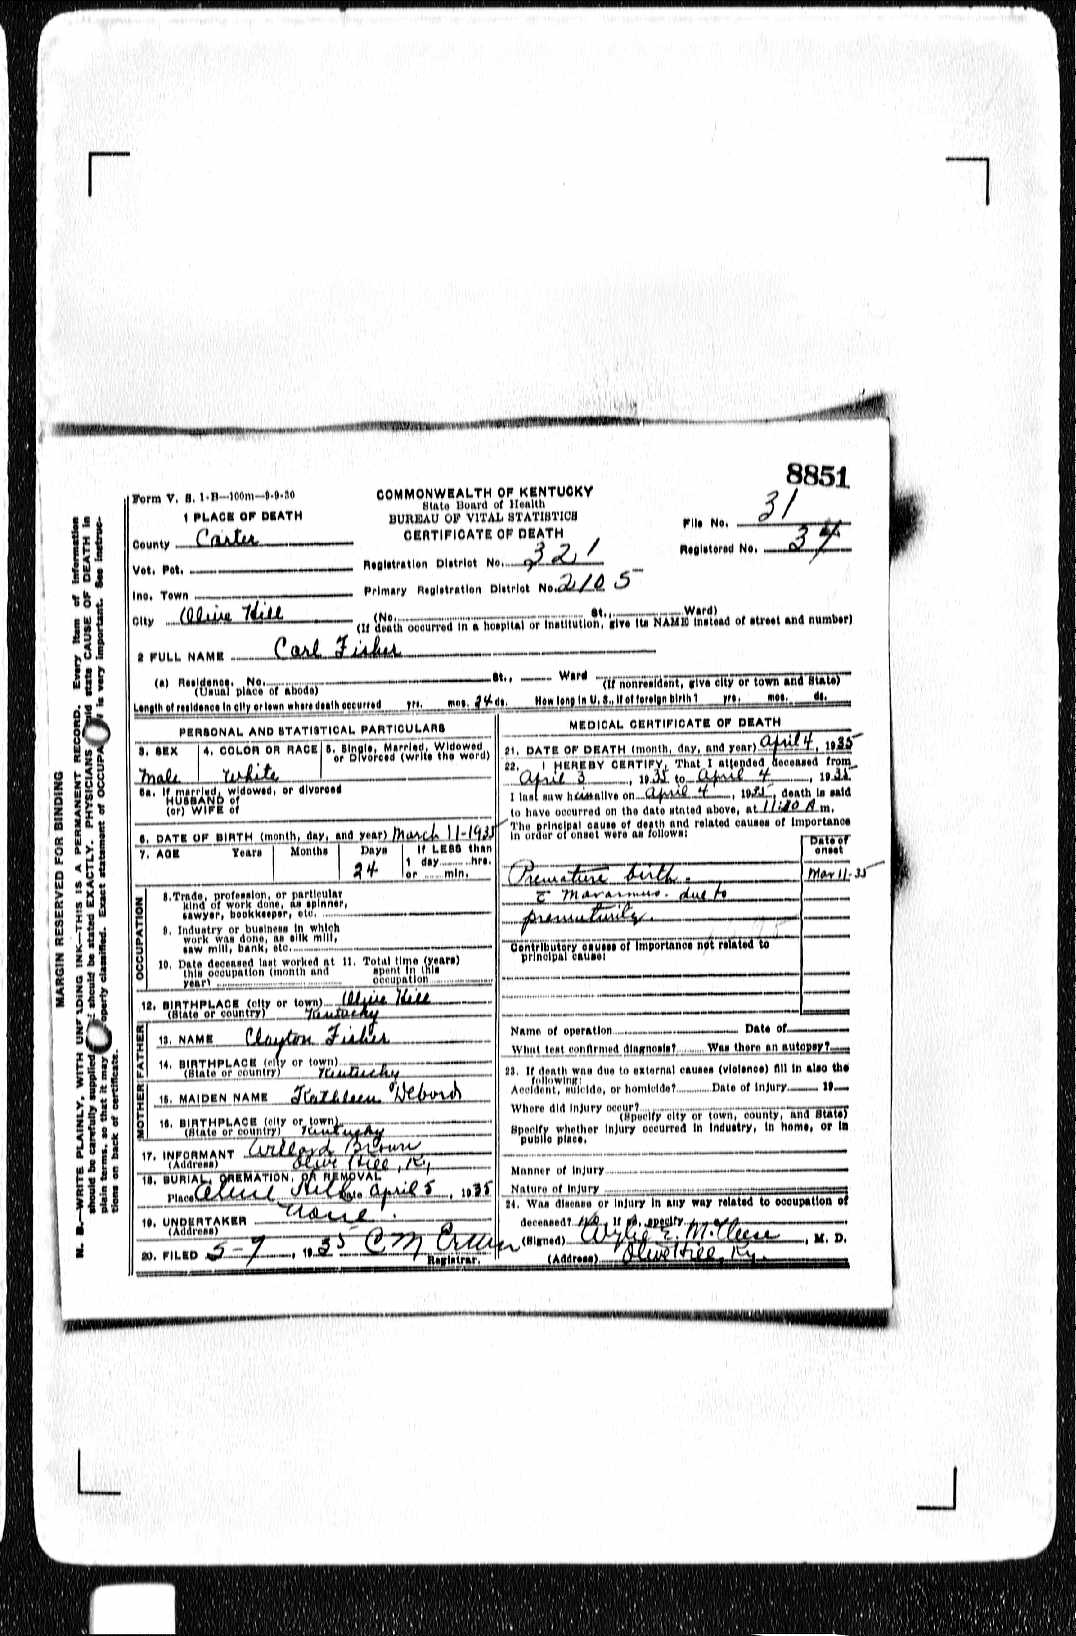 8851
Form V. S. 1-B—100m—9-9-30
COMMONWEALTH OF KENTUCKY
State Board of Health
BUREAU OF VITAL STATISTICS
CERTIFICATE OF DEATH
File No. 31
Registered No. 34
1 PLACE OF DEATH
County Carter
Vot. Pct.
Registration District No. 321
Inc. Town
Primary Registration District No. 2105
City Olive Hill
(No. St., Ward)
(If death occurred in a hospital or institution, give its NAME instead of street and number)
2 FULL NAME Carl Fisher
(a) Residence. No. St., Ward
(Usual place of abode) (If nonresident, give city or town and State)
Length of residence in city or town where death occurred yrs. mos. 24 ds. How long in U. S., if of foreign birth? yrs. mos. ds.
PERSONAL AND STATISTICAL PARTICULARS
3. SEX
Male
4. COLOR OR RACE
White
5. Single, Married, Widowed
or Divorced (write the word)
5a. If married, widowed, or divorced
HUSBAND of
(or) WIFE of
6. DATE OF BIRTH (month, day, and year) March 11-1935
7. AGE Years Months Days If LESS than
24
1 day hrs.
or min.
OCCUPATION
8. Trade, profession, or particular
kind of work done, as spinner,
sawyer, bookkeeper, etc.
9. Industry or business in which
work was done, as silk mill,
saw mill, bank, etc.
10. Date deceased last worked at
this occupation (month and
year)
11. Total time (years)
spent in this
occupation
12. BIRTHPLACE (city or town) Olive Hill
(State or country) Kentucky
FATHER
13. NAME Clayton Fisher
14. BIRTHPLACE (city or town)
(State or country) Kentucky
MOTHER
15. MAIDEN NAME Kathleen Debord
16. BIRTHPLACE (city or town)
(State or country) Kentucky
17. INFORMANT Willard Brown
(Address) Olive Hill, Ky,
18. BURIAL, CREMATION, OR REMOVAL
Place Olive Hill Date April 5, 1935
19. UNDERTAKER None.
(Address)
20. FILED 5-9, 1935 C M
Registrar.
MEDICAL CERTIFICATE OF DEATH
21. DATE OF DEATH (month, day, and year) April 4, 1935
22. I HEREBY CERTIFY, That I attended deceased from
April 3, 1935 to April 4, 1935
I last saw him alive on April 4, 1935, death is said
to have occurred on the date stated above, at A m.
The principal cause of death and related causes of importance
in order of onset were as follows:
Date of
onset
Premature birth. Mar 11-35
c̄ Marasmus. due to
prematurity.
Contributory causes of importance not related to
principal cause:
Name of operation Date of
What test confirmed diagnosis? Was there an autopsy?
23. If death was due to external causes (violence) fill in also the
following:
Accident, suicide, or homicide? Date of injury 19
Where did injury occur?
(Specify city or town, county, and State)
Specify whether injury occurred in industry, in home, or in
public place.
Manner of injury
Nature of injury
24. Was disease or injury in any way related to occupation of
deceased? No If so, specify
(Signed) , M. D.
(Address) Olive Hill, Ky.
MARGIN RESERVED FOR BINDING
N. B.—WRITE PLAINLY, WITH UNFADING INK—THIS IS A PERMANENT RECORD. Every item of information
should be carefully supplied. should be stated EXACTLY. PHYSICIANS should state CAUSE OF DEATH in
plain terms, so that it may properly classified. Exact statement of is very important. See instruc-
tions on back of certificate.